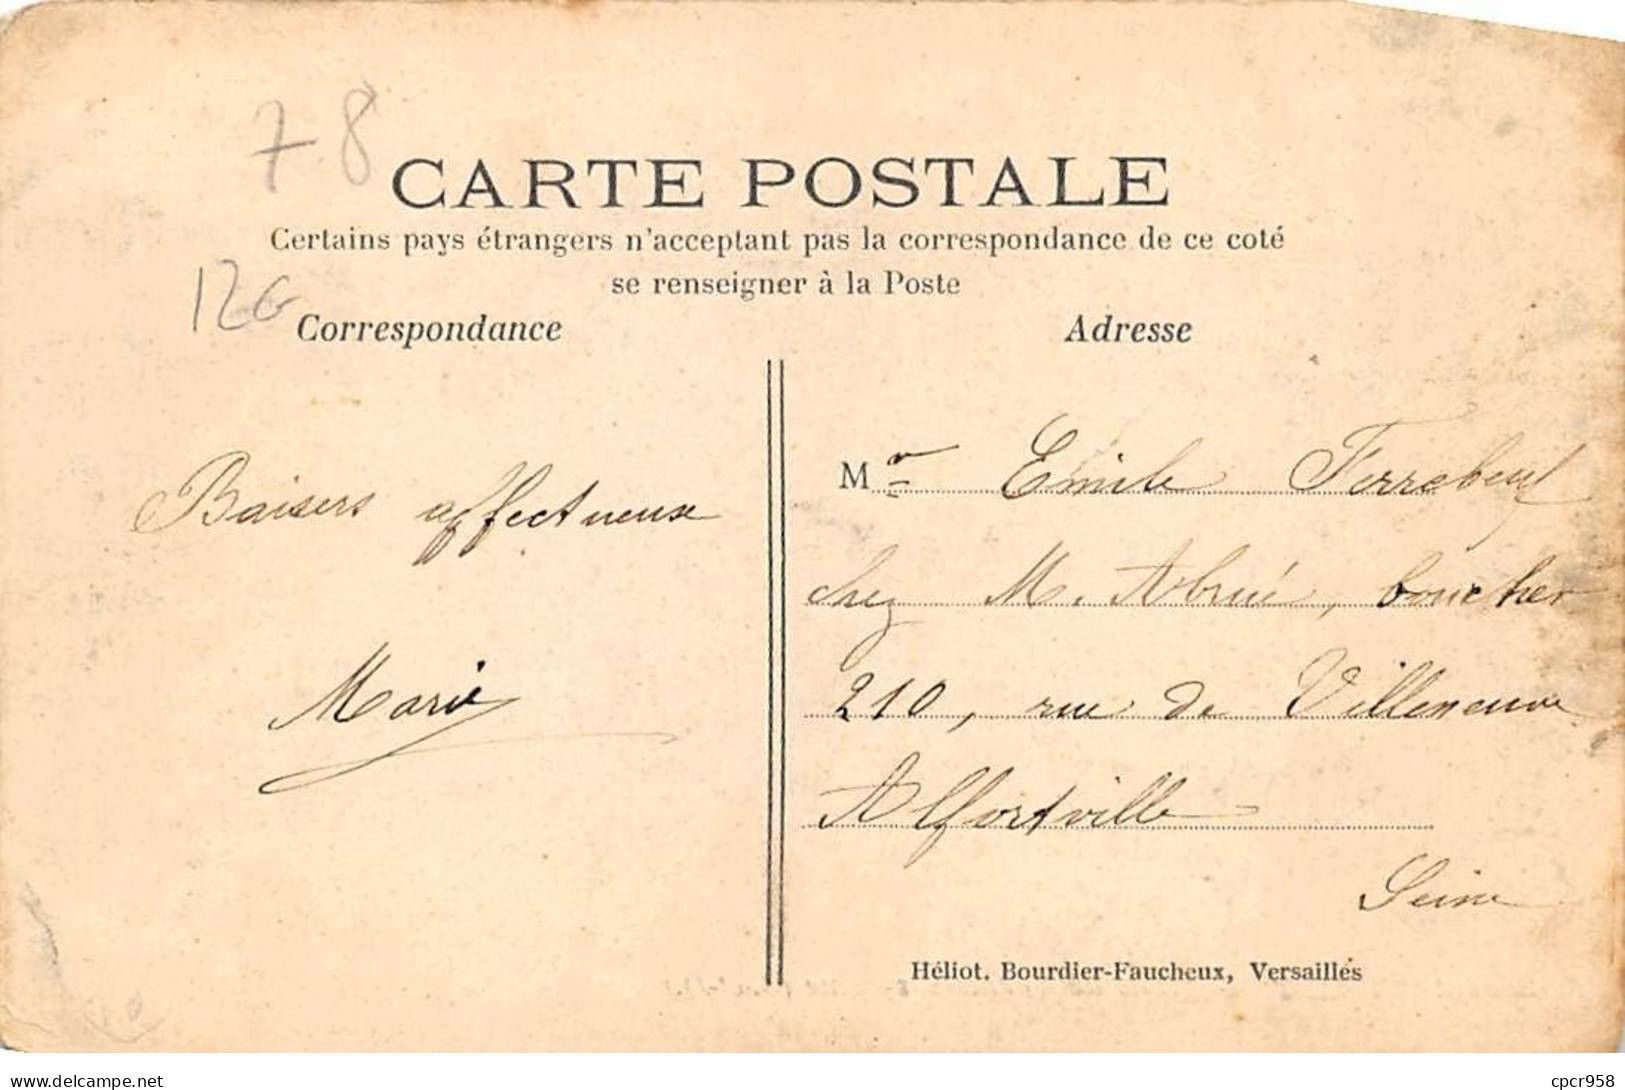 78
CARTE POSTALE
Certains pays étrangers n'acceptant pas la correspondance de ce coté
se renseigner à la Poste
12G
Correspondance
Adresse
Baisers affectueux
Marie
Mr Emile Ferrebeuf
chez M. Abrué, boucher
210, rue de Villeneuve
Alfortville
Seine
Héliot. Bourdier-Faucheux, Versailles
delcampe.net
cpcr958